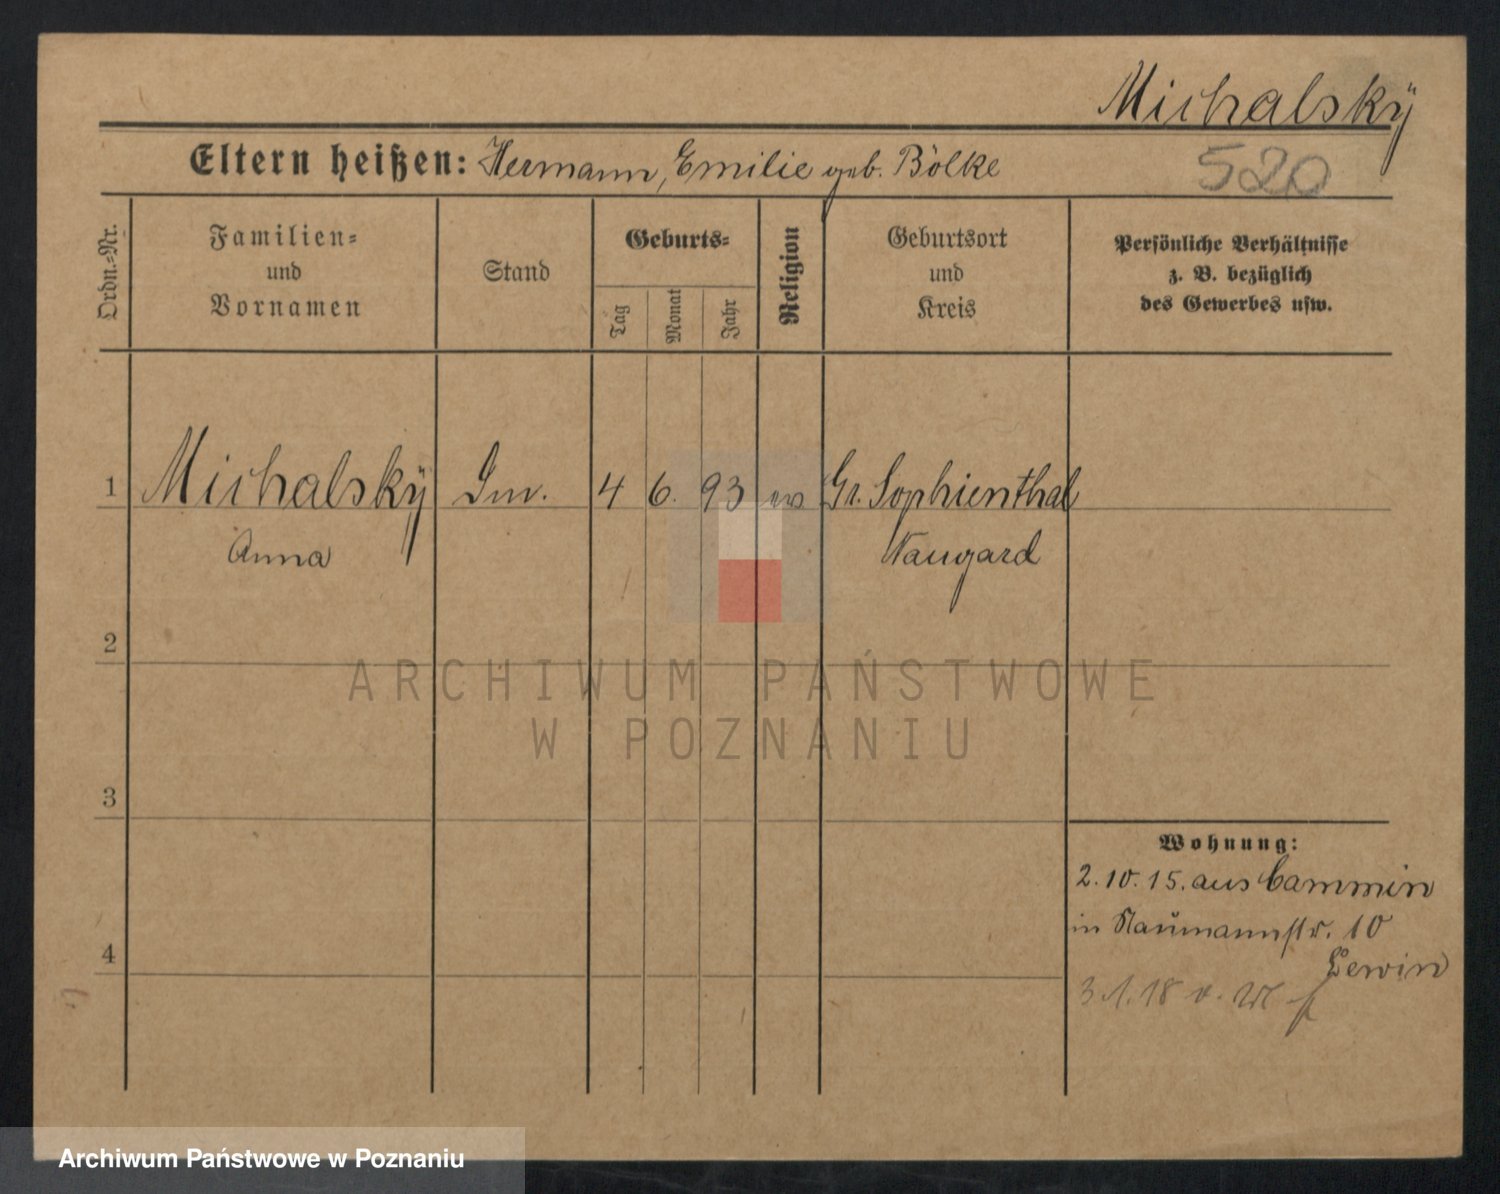 Michalskÿ
Eltern heißen: Hermann, Emilie geb. Bölke
520
Ordn.-Nr.
Familien-
und
Vornamen
Stand
Geburts-
Tag
Monat
Jahr
Religion
Geburtsort
und
Kreis
Persönliche Verhältnisse
z. B. bezüglich
des Gewerbes usw.
1 Michalskÿ 4 6. 93 ev Gr. Sophienthal
Anna Naugard
2
ARCHIWUM PAŃSTWOWE
W POZNANIU
3
Wohnung:
2.10.15. aus Cammin
in Naumannstr. 10
Lewin
4
3.1.18 v.
Archiwum Państwowe w Poznaniu